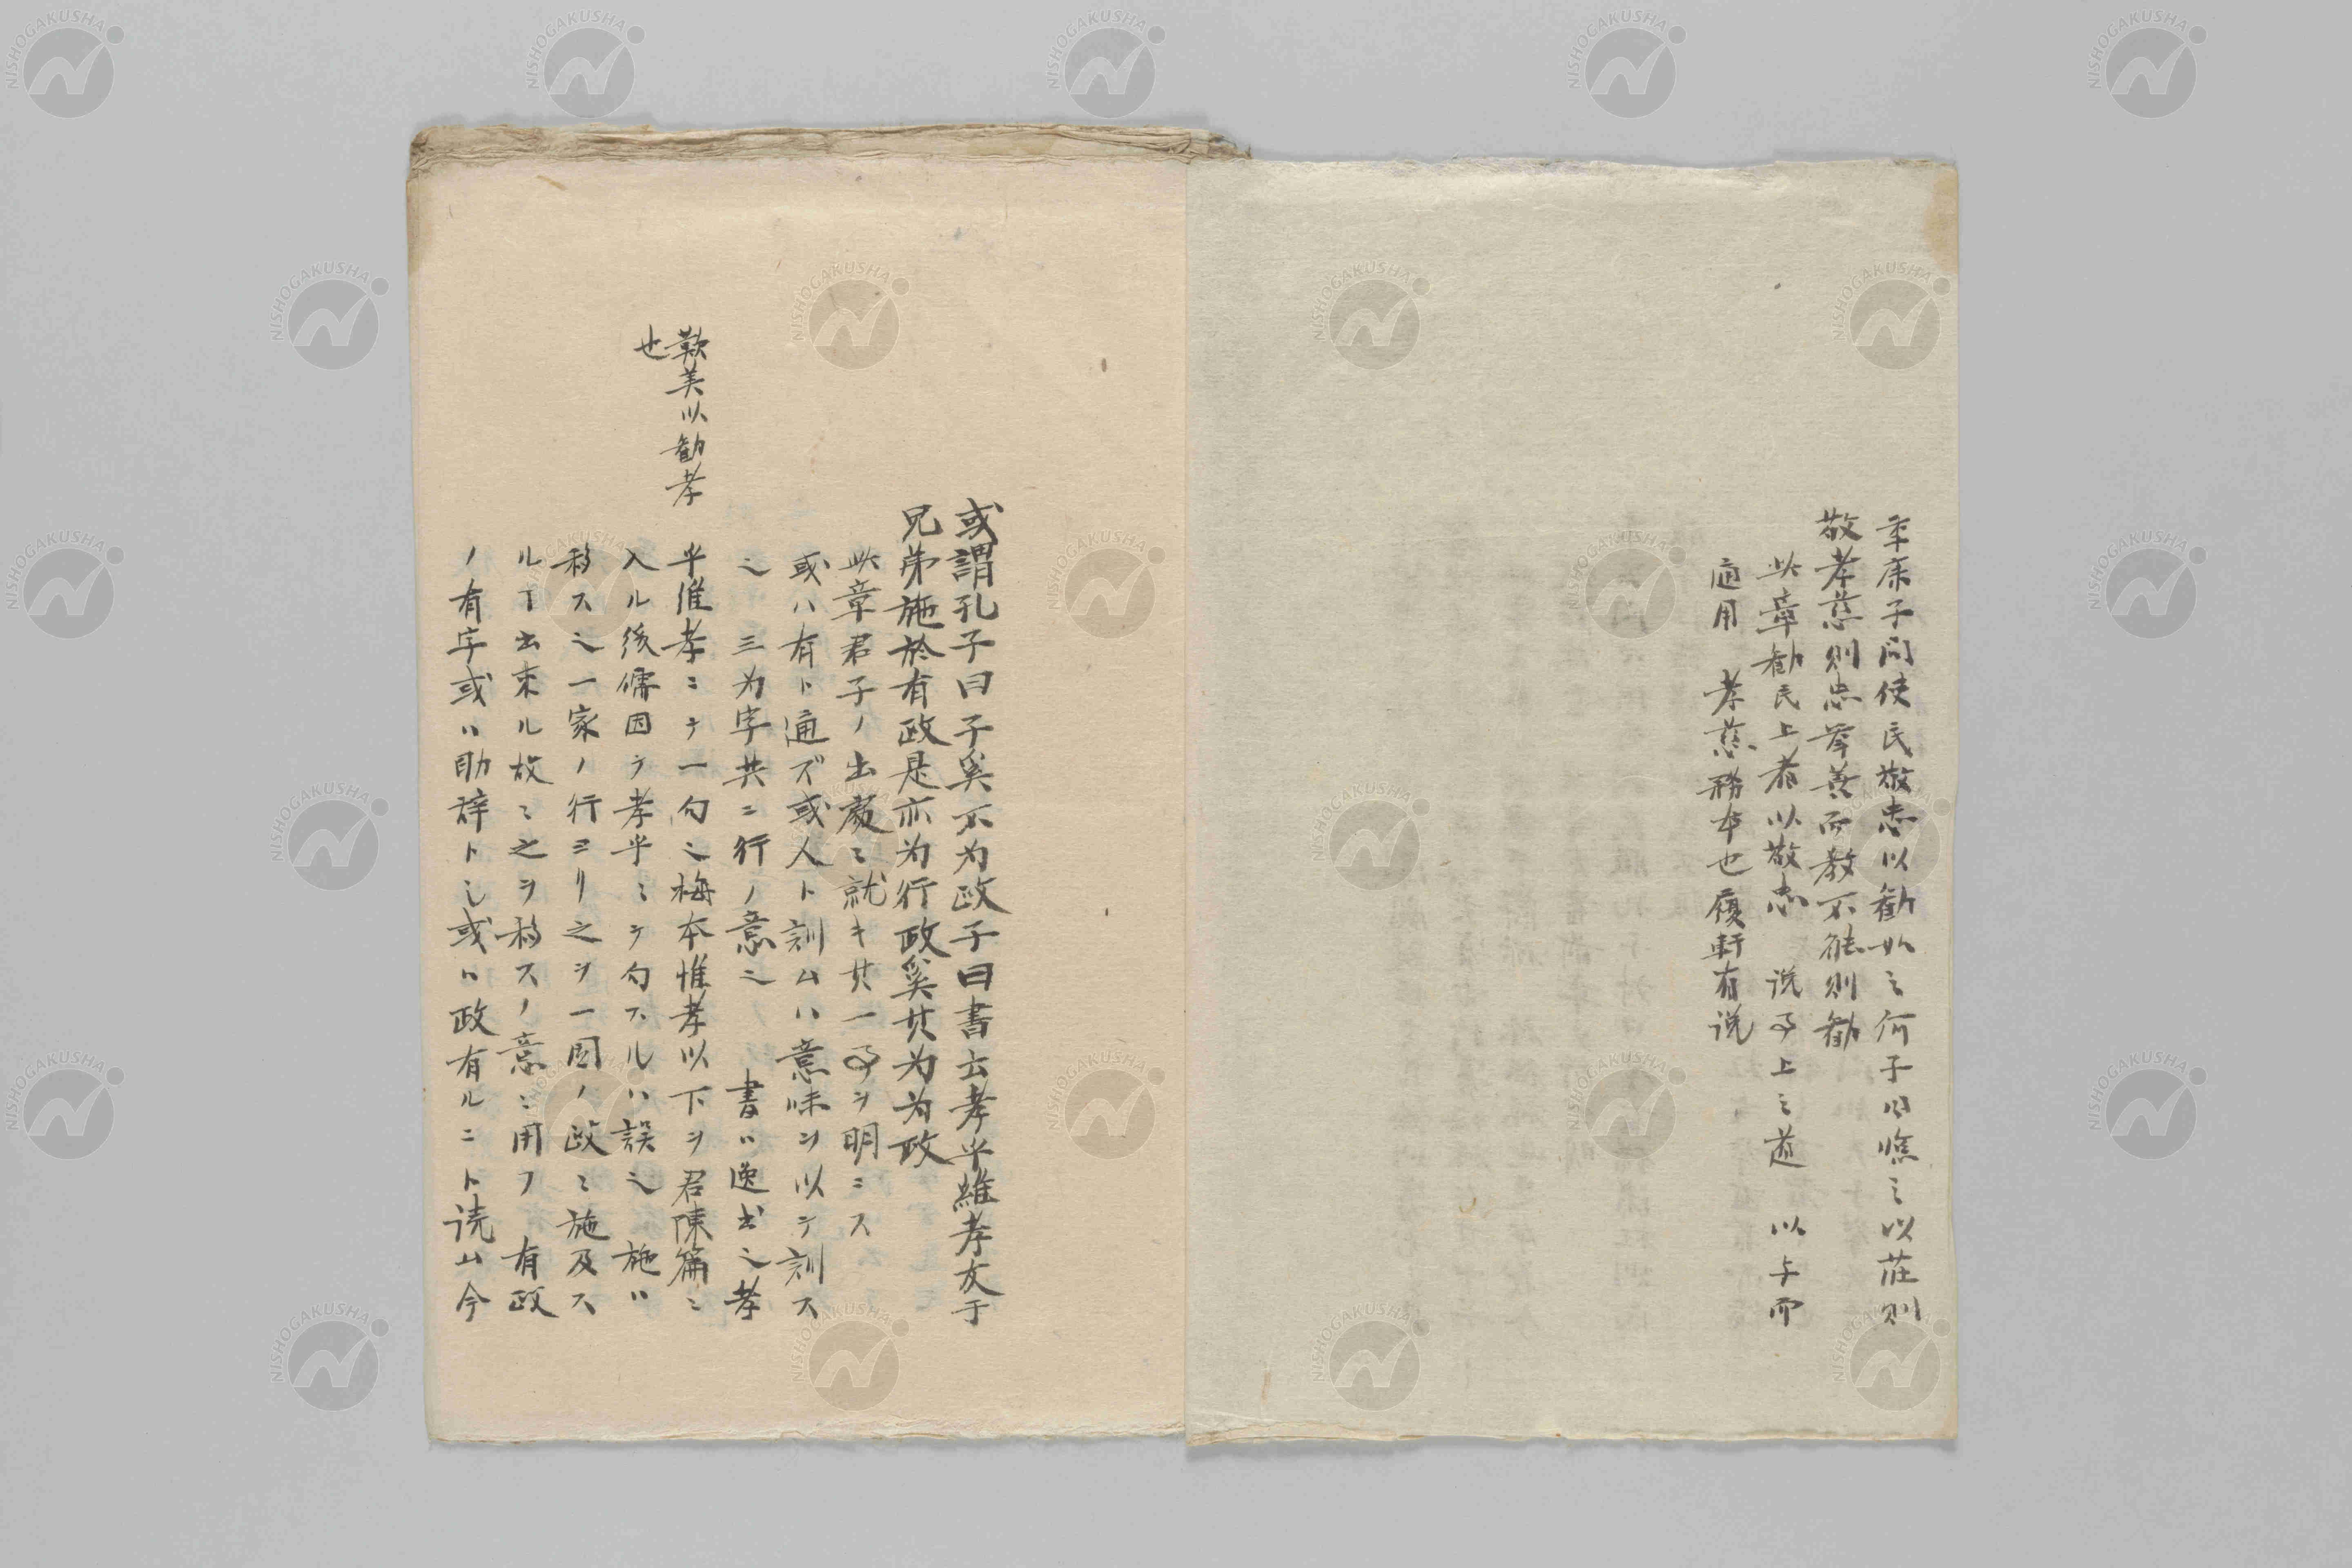 季康子問使民敬忠以勧如之何子曰臨之以荘則
敬孝慈則忠挙善而教不能則勧
此章勧民上者以敬忠 说事上之道 以与而
適用 孝慈務本也履軒有说
或謂孔子曰子奚不为政子曰書云孝乎維孝友于
兄弟施於有政是亦为行政奚其为为政
此章君子ノ出處ニ就キ其一事ヲ明ニス
或ハ有ト通ズ或人ト訓ムハ意味ヲ以テ訓ス
之 三为字共ニ行ノ意之 書ハ逸书之孝
乎惟孝ニテ一句之梅本惟孝以下ヲ君陳篇ニ
入ル後儒因テ孝乎ミテ句スルハ誤之 施ハ
移ス之一家ノ行ヨリ之ヲ一国ノ政ニ施及ス
ルヿ出来ル故ニ之ヲ移スノ意ニ用フ 有政
ノ有字或ハ助辞トし或ハ政有ルニト读ム今
歎美以勧孝
也
NISHOGAKUSHA